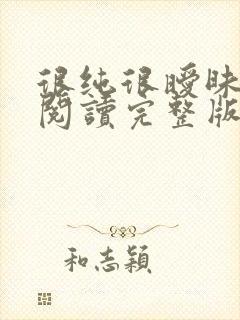 很纯很曖昧
閱讀完整版
和志穎